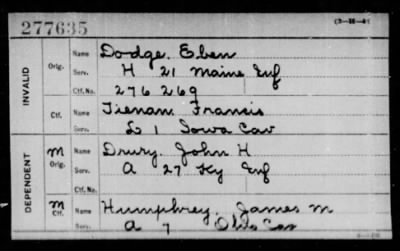 277635
(3-
INVALID
Orig.
Name Dodge, Eben
Serv. H 21 Maine Inf
Ctf. No. 276 269
Ctf.
Name Tienam Francis
Serv. L 1 Iowa Cav
DEPENDENT
M Orig.
Name Drury, John H
Serv. A 27 Ky Inf
Ctf. No.
M Ctf.
Name Humphrey, James M
Serv. A 7 Ohio Cav